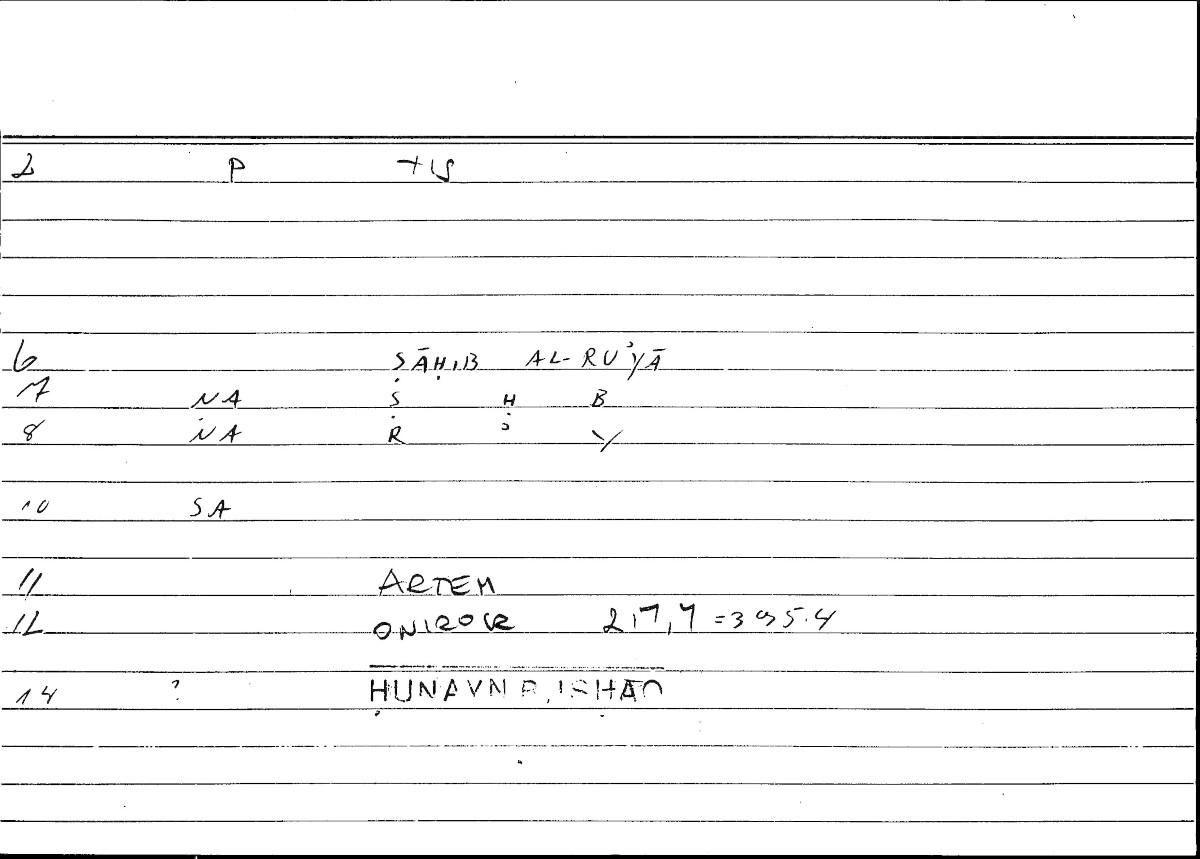 2 P
6 ṢĀḤIB AL-RUʾYĀ
7 NA Ṣ Ḥ B
8 NA R ʾ Y
10 SA
11 ARTEM
12 ONIROCR
14 ? ḤUNAYN B. ISḤĀQ